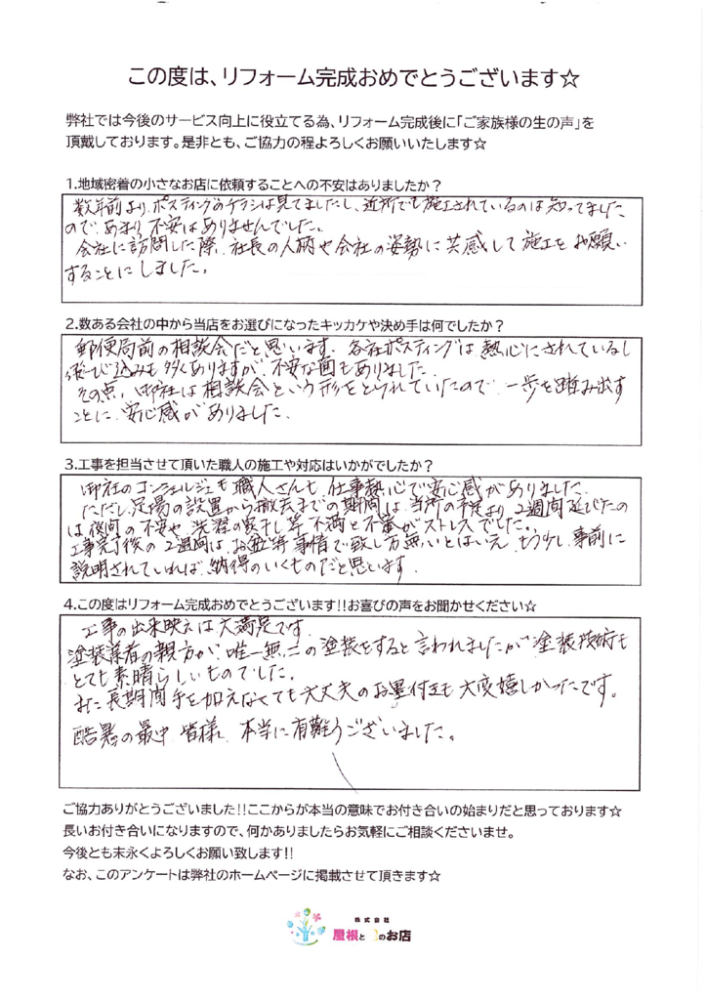 この度は、リフォーム完成おめでとうございます☆
弊社では今後のサービス向上に役立てる為、リフォーム完成後に「ご家族様の生の声」を
頂戴しております。是非とも、ご協力の程よろしくお願いいたします☆
1.地域密着の小さなお店に依頼することへの不安はありましたか？
数年前より、ポスティングのチラシは見てましたし、近所でも施工されているのは知ってました
ので、あまり不安はありませんでした。
会社に訪問した際、社長の人柄や会社の姿勢に共感して施工をお願い
することにしました。
2.数ある会社の中から当店をお選びになったキッカケや決め手は何でしたか？
郵便局前の相談会だと思います。各社ポスティングは熱心にされているし
飛び込みも多くありますが、不安な面もありました。
その点、御社は相談会という形をとられていたので、一歩を踏み出す
ことに、安心感がありました。
3.工事を担当させて頂いた職人の施工や対応はいかがでしたか？
御社のコンシェルジュも職人さんも、仕事熱心で安心感がありました。
ただし、足場の設置から撤去までの期間は、当所の予定より2週間延びたの
は夜間の不安や、洗濯の陰干し等、不満と不審がストレスでした。
工事完了後の2週間は、お盆等事情で致し方無いとはいえ、もう少し事前に
説明されていれば、納得のいくものだと思います。
4.この度はリフォーム完成おめでとうございます!!お喜びの声をお聞かせください☆
工事の出来映えは大満足です。
塗装業者の親方が、唯一無二の塗装をすると言われましたが、塗装技術も
とても素晴らしいものでした。
また長期間手を加えなくても大丈夫のお墨付きも大変嬉しかったです。
酷暑の最中 皆様、本当に有難うございました。
ご協力ありがとうございました!!ここからが本当の意味でお付き合いの始まりだと思っております☆
長いお付き合いになりますので、何かありましたらお気軽にご相談くださいませ。
今後とも末永くよろしくお願い致します!!
なお、このアンケートは弊社のホームページに掲載させて頂きます☆
株式会社
屋根と のお店